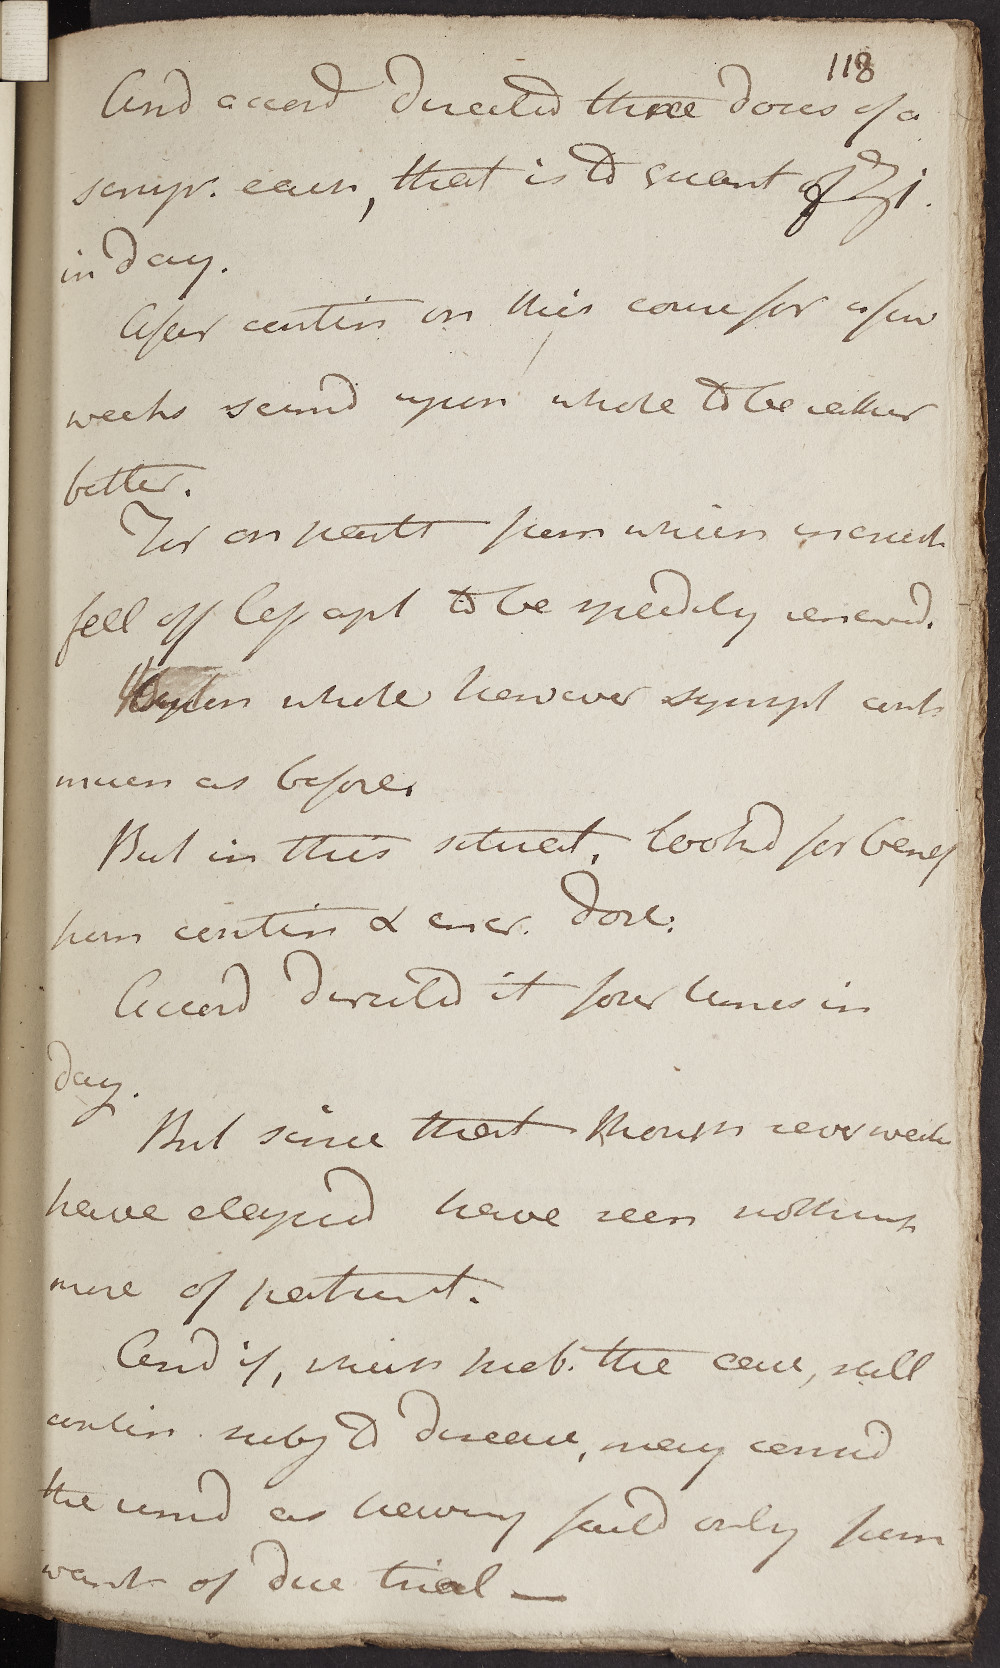 118
And accord directed three doses of a
scrup. each, that is to quant of ʒi.
in day.
After contin on this course for a few
weeks seemd upon whole to be rather
better.
For on parts from which crusts
fell off less apt to be speedily renewd.
Upon whole however sympt cont
much as before.
But in this situat. lookd for benef
from contin & encr. dose.
Accord directed it four times in
day.
But since that though sever weeks
have elapsed have seen nothing
more of patient.
And if, which prob. the case, still
contin. subj to disease, may consid
the remd as having faild only from
want of due trial —